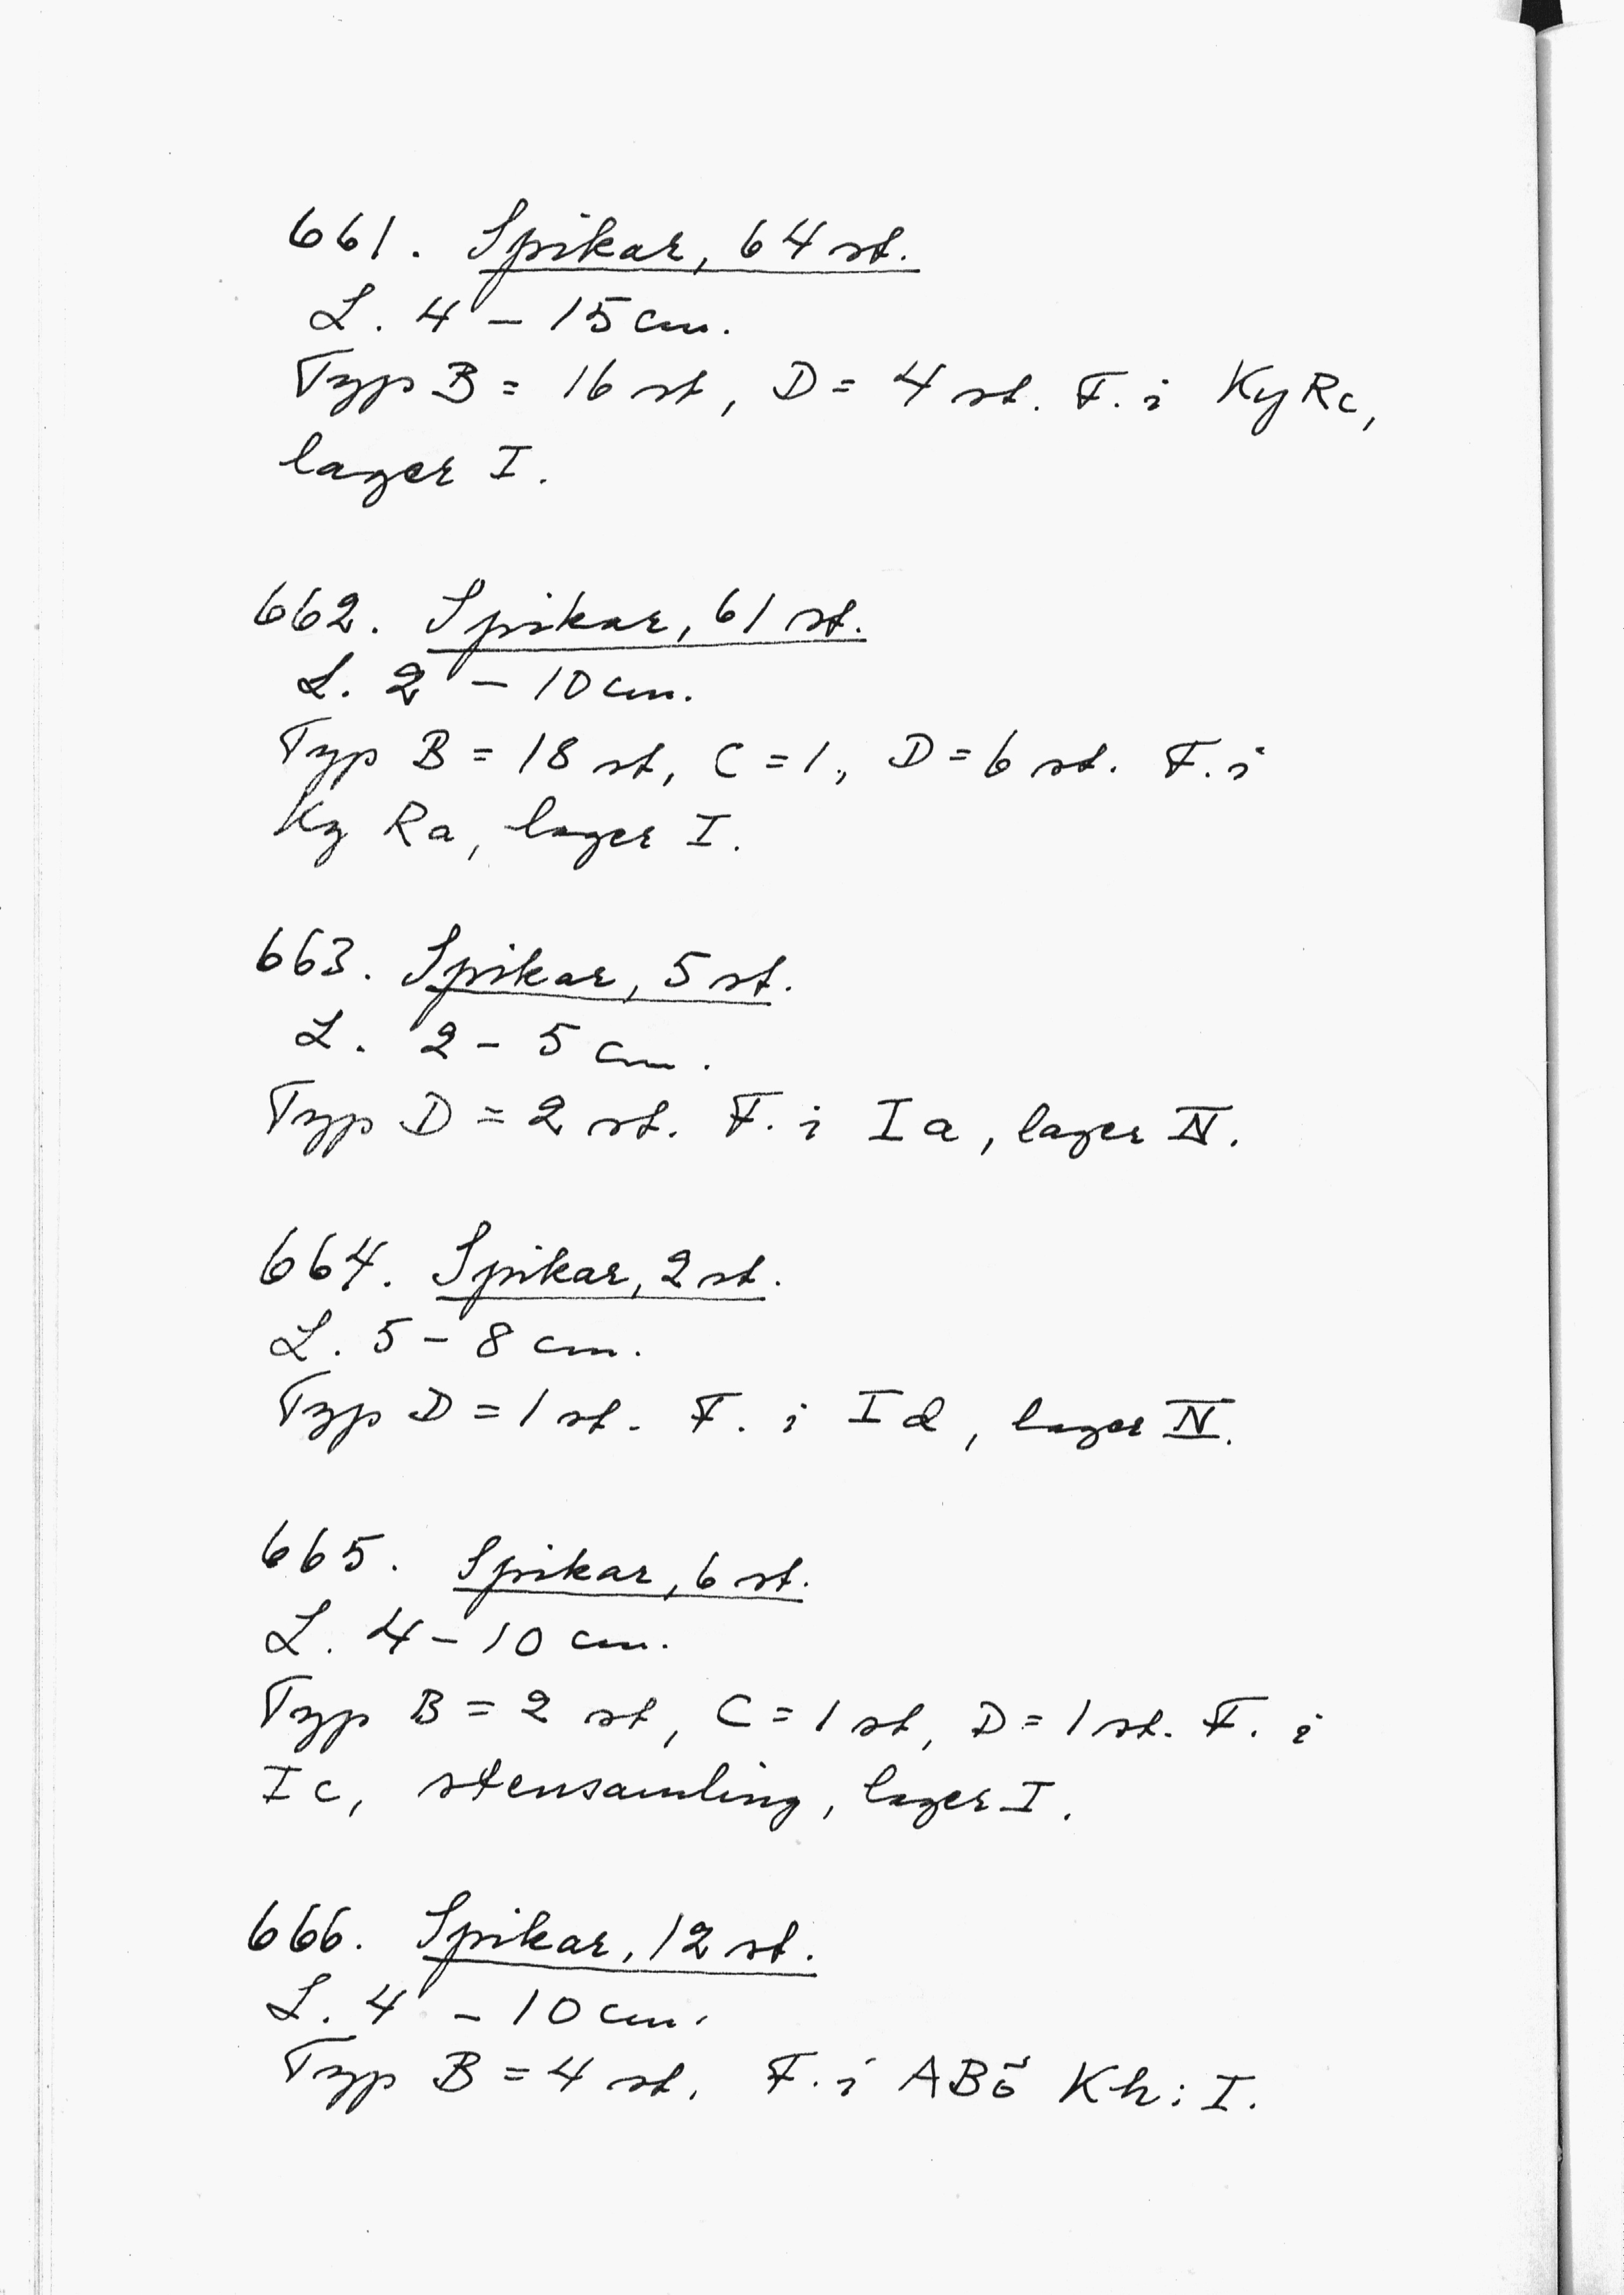 661. Spikar, 64 st.
L. 4 - 15 cm.
Typ B = 16 st, D = 4 st. F. i Ky Rc,
lager I.
662. Spikar, 61 st.
L. 2 - 10 cm.
Typ B = 18 st, C = 1, D = 6 st. F. i
Ky Ra, lager I.
663. Spikar, 5 st.
L. 2 - 5 cm.
Typ D = 2 st. F. i Ia, lager IV.
664. Spikar, 2 st.
L. 5 - 8 cm.
Typ D = 1 st. F. i Id, lager IV.
665. Spikar, 6 st.
L. 4 - 10 cm.
Typ B = 2 st, C = 1 st, D = 1 st. F. i
Ic, stensamling, lager I.
666. Spikar, 12 st.
L. 4 - 10 cm.
Typ B = 4 st. F. i ABö Kh: I.